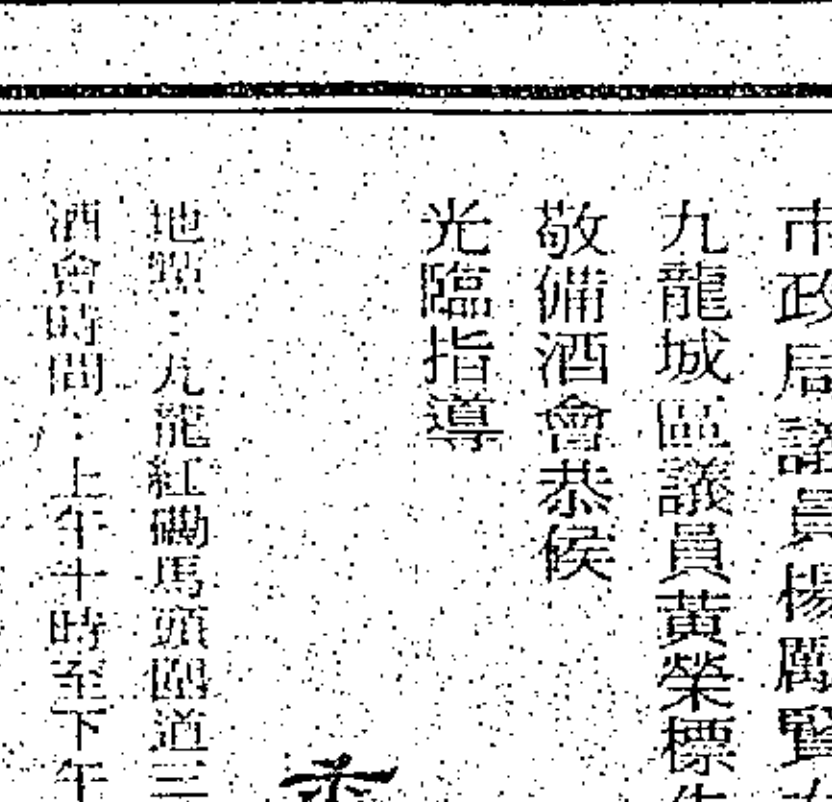 市政局議員楊勵賢
九龍城區議員黃榮標
敬備酒會恭候
光臨指導
地點：九龍紅磡馬頭圍道三
酒會時間：上午十時至下午